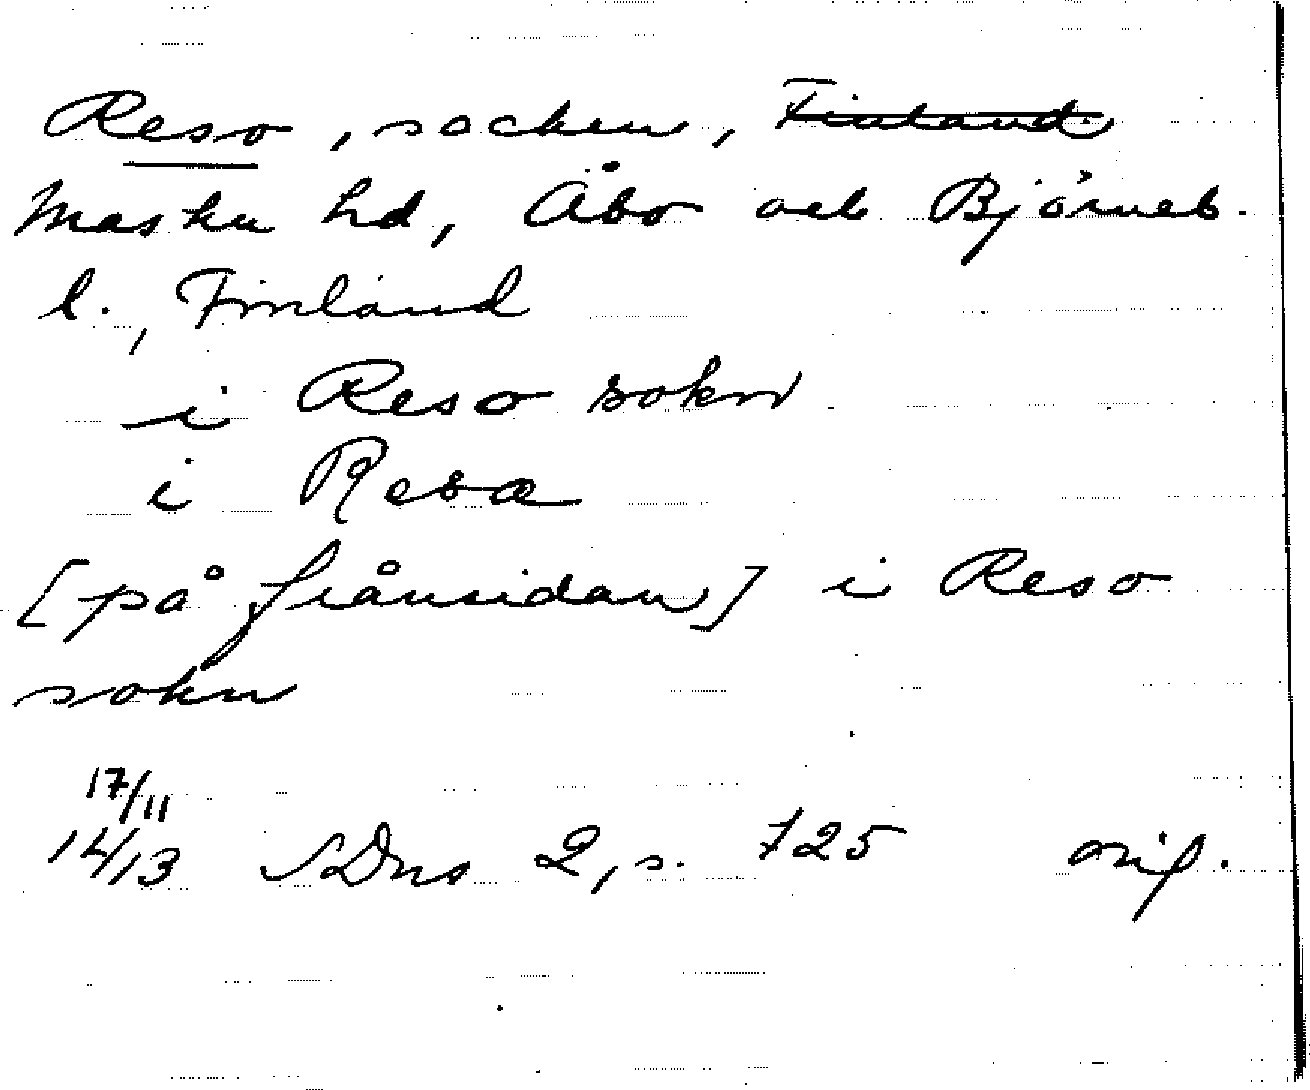 Reso, socken, Finland
Masku hd, Åbo och Björneb.
l., Finland
i Reso sokn
i Resa
[på frånsidan] i Reso
sokn
17/11
14/13 SDns 2, s. 725